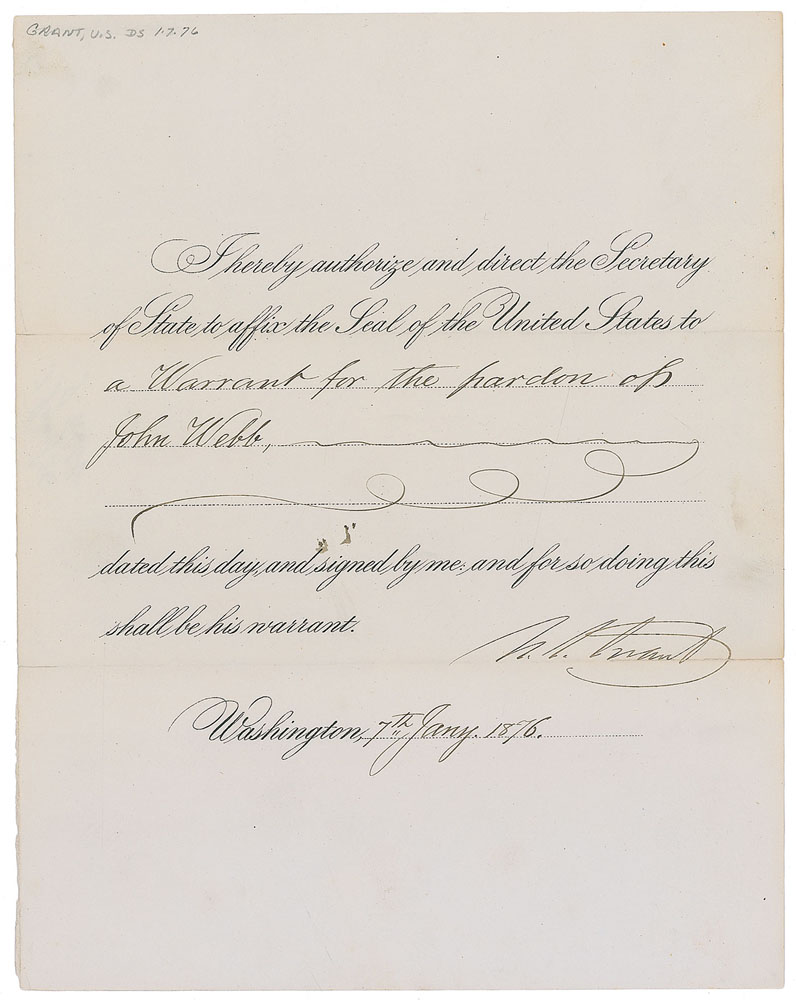 GRANT, U.S. DS 1.7.76
I hereby authorize and direct the Secretary
of State to affix the Seal of the United States to
a Warrant for the pardon of
John Webb,
dated this day, and signed by me: and for so doing this
shall be his warrant.
U.S. Grant
Washington, 7th Jany. 1876.